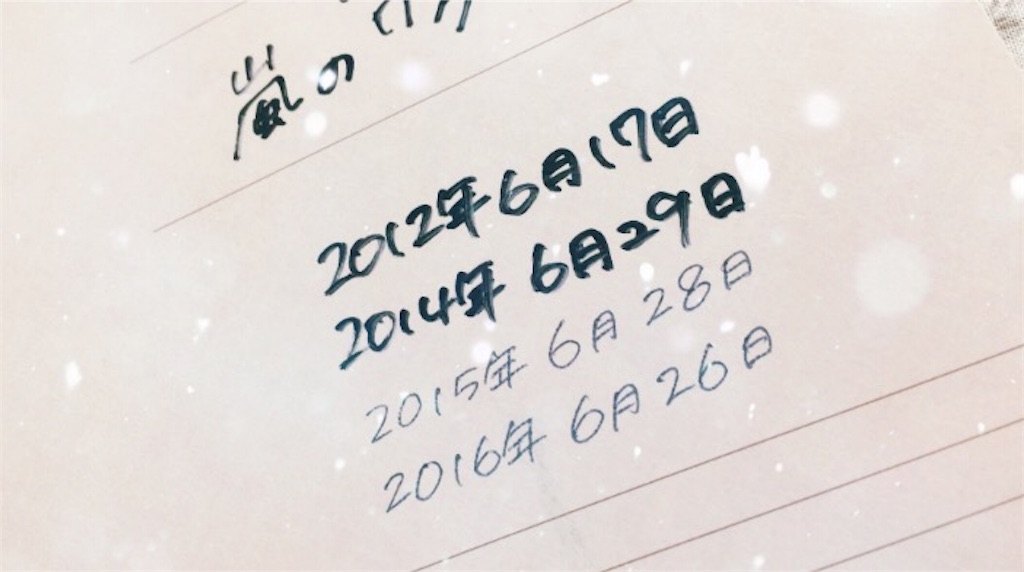 嵐の
2012年6月17日
2014年6月29日
2015年6月28日
2016年6月26日